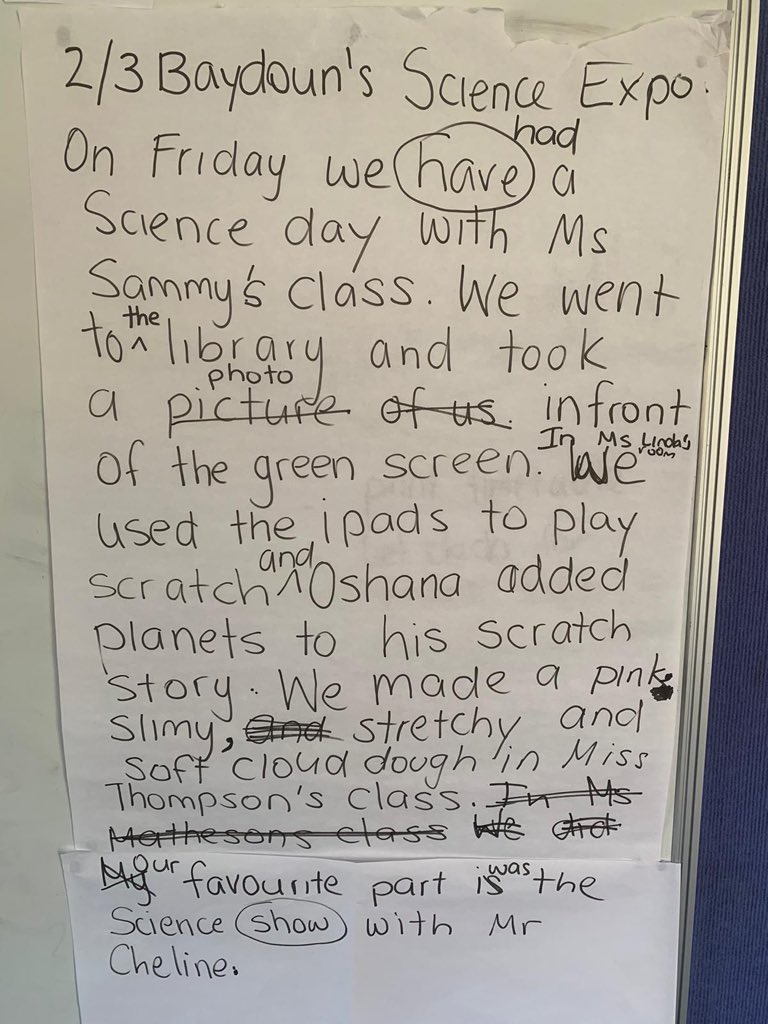 2/3 Baydoun's Science Expo.
had
On Friday we have a
Science day with Ms
Sammy's class. We went
to ^the library and took
photo
a picture of us. infront
In Ms Linda's room
of the green screen. We
used the ipads to play
and
scratch ^ Oshana added
planets to his scratch
story. We made a pink,
slimy, and stretchy and
soft cloud dough in Miss
Thompson's class. In Ms
Mathesons class We did
our was
My favourite part is the
Science show with Mr
Cheline.